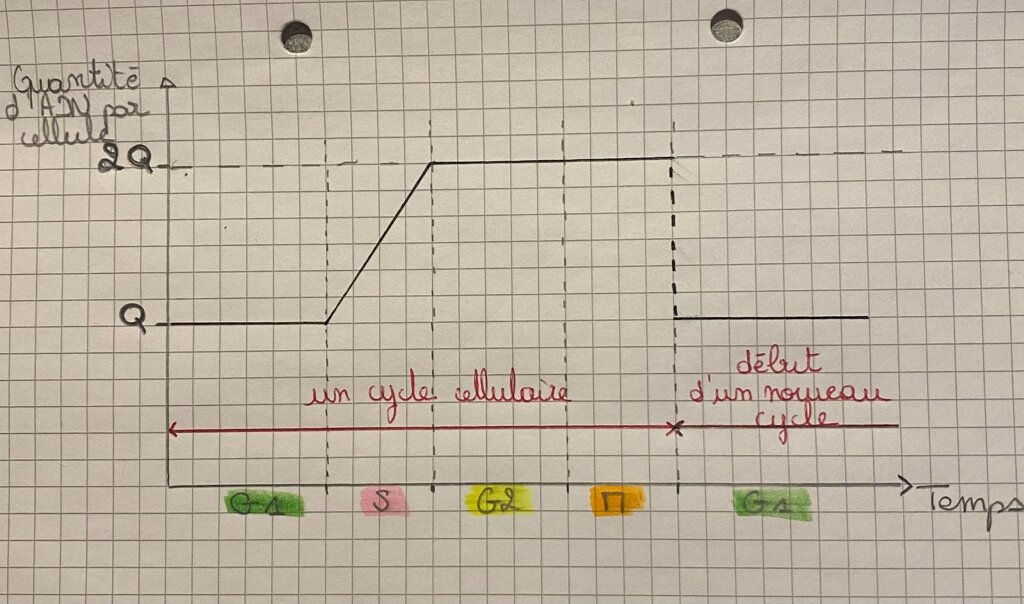 Quantité
d'ADN par
cellule
2Q
Q
un cycle cellulaire
début
d'un nouveau
cycle
G1 S G2 M G1
Temps